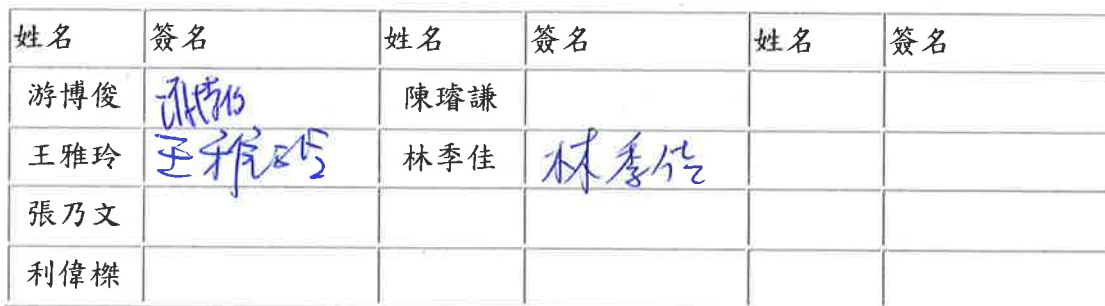 姓名 簽名 姓名 簽名 姓名 簽名
游博俊 游博俊 陳璿謙
王雅玲 王雅玲 林季佳 林季佳
張乃文
利偉榤